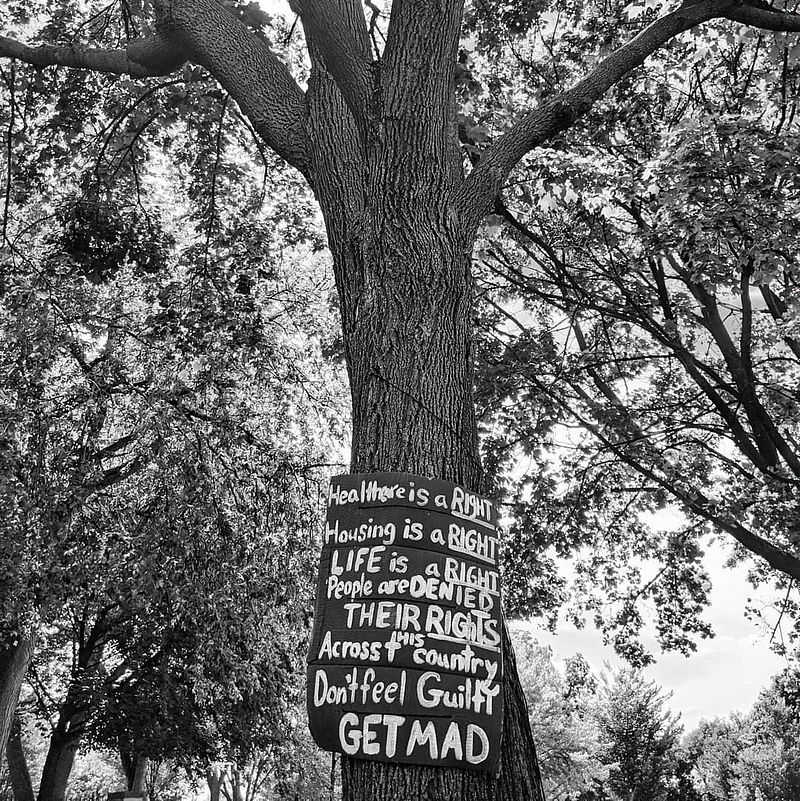 Healthcare is a RIGHT
Housing is a RIGHT
LIFE is a RIGHT
People are DENIED
THEIR RIGHTS
Across this country
Don't feel Guilty
GET MAD